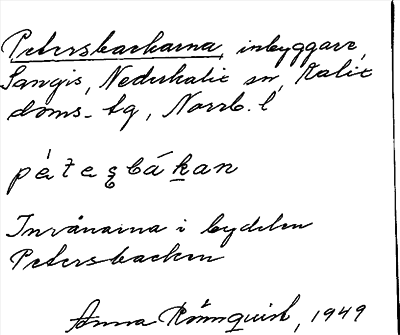 Petersbackarna, inbyggare,
Sangis, Nederkalix sn, Kalix
doms. tg, Norrb. l
pétesbákan
Invånarna i bydelen
Petersbacken
Anna Rönnquist, 1949